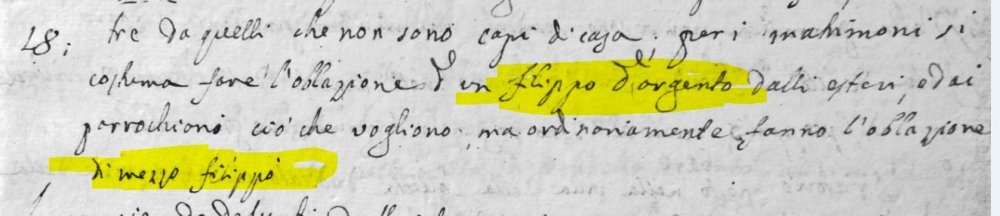 18: tre da quelli che non sono capi di casa. per i matrimoni si
costuma fare l'oblazione d' un filippo d'argento dalli esteri, e dai
parrochiani ciò che vogliono. ma ordinariamente fanno l'oblazione
di mezzo filippo